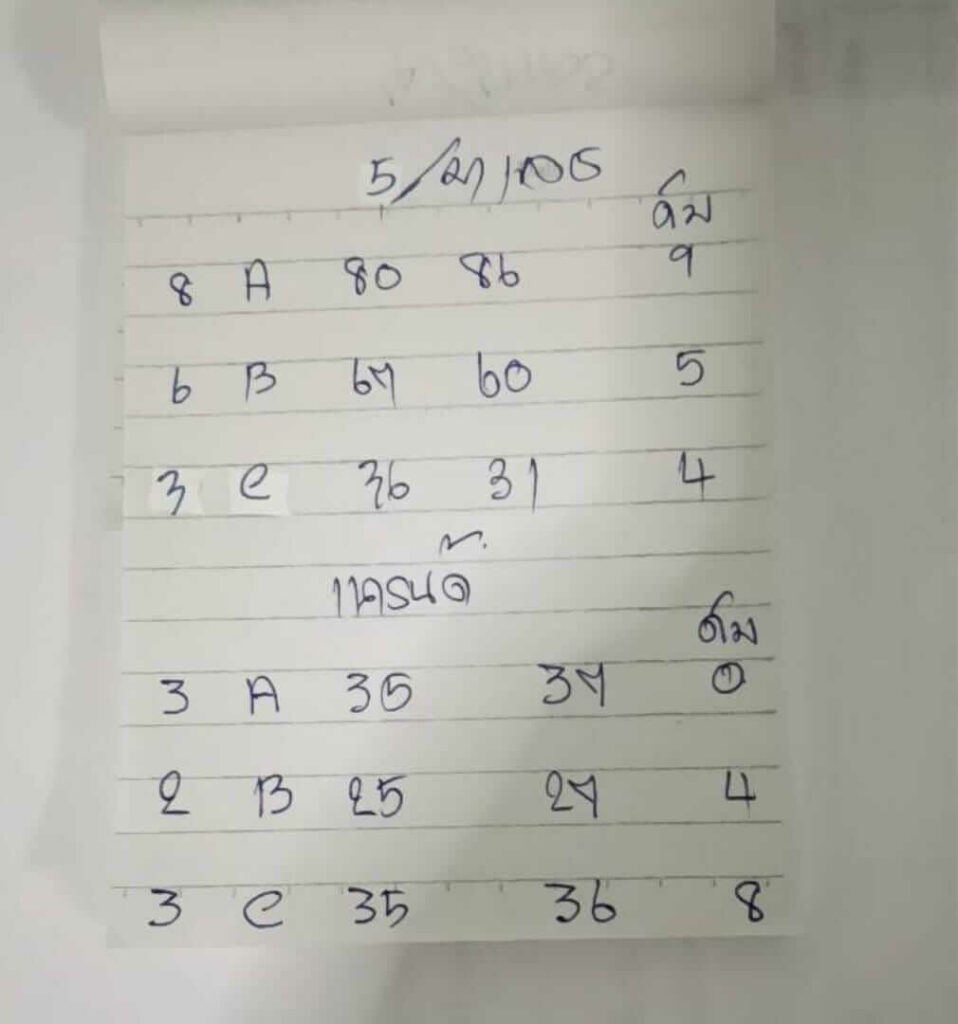 5/
ดับ
8 A 80 86 9
6 B 67 60 5
3 C 36 31 4
แกรนด์
ดับ
3 A 35 37 0
2 B 25 27 4
3 C 35 36 8